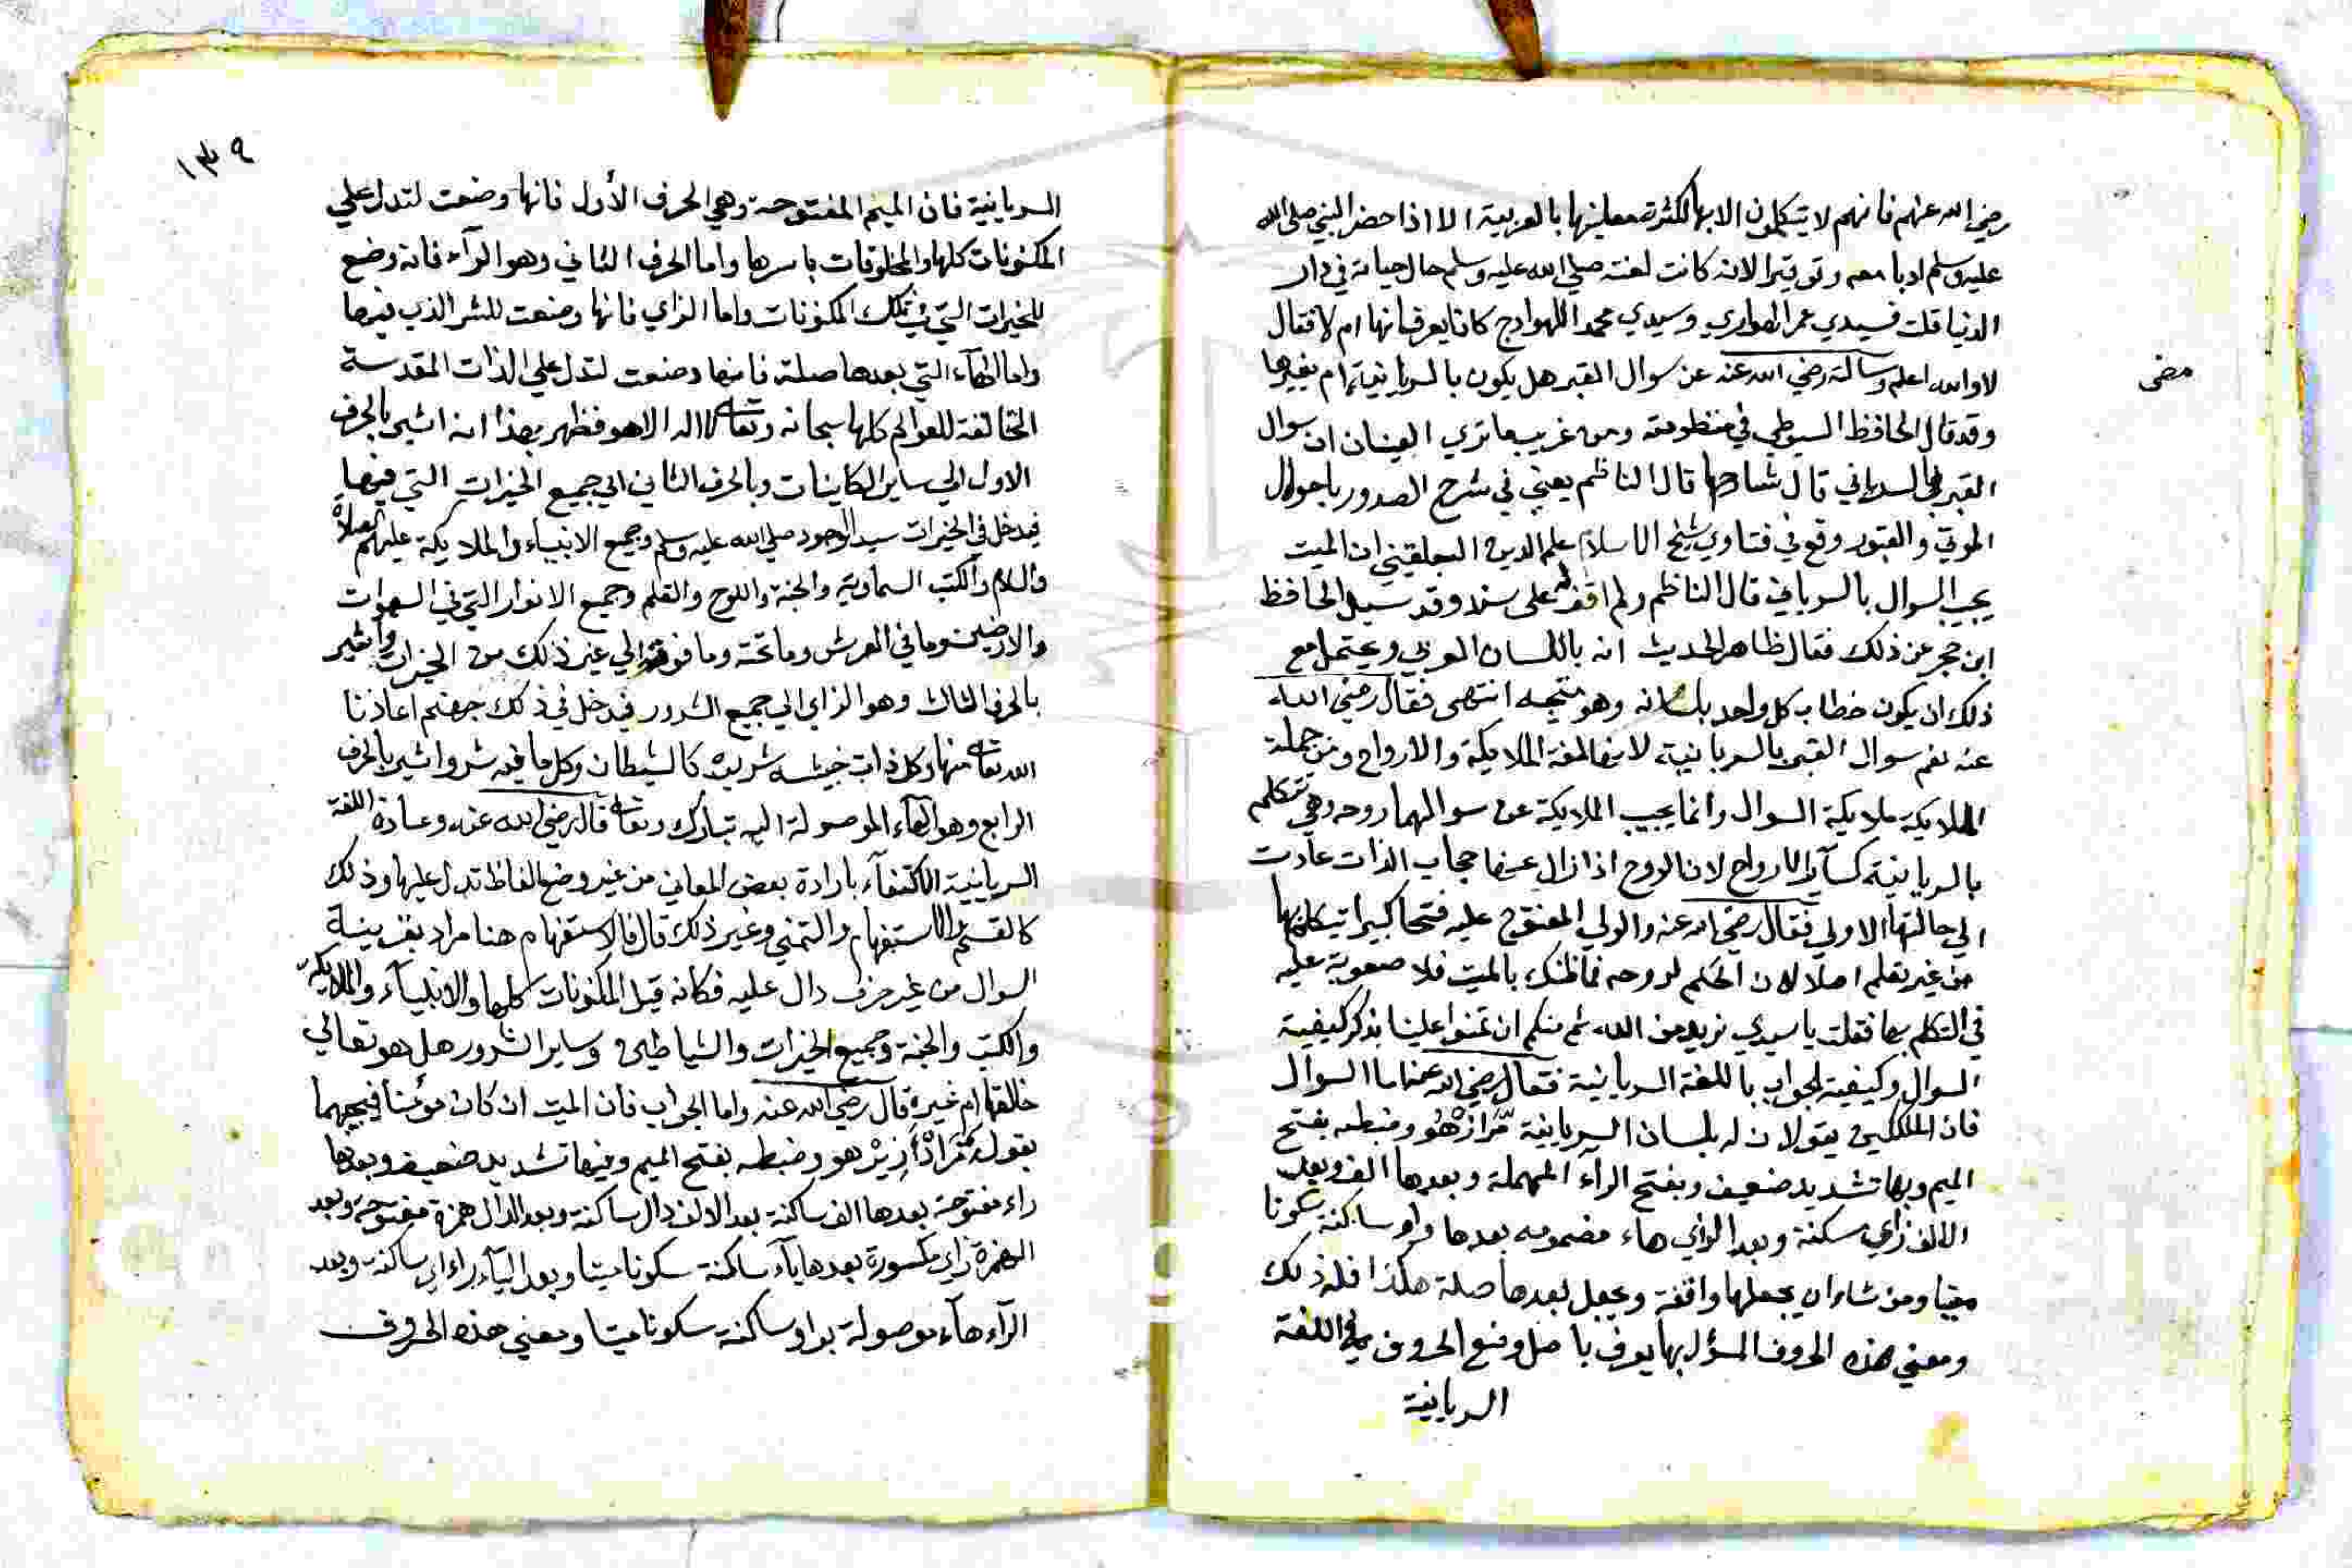 رضي الله عنهم فانهم لا يتكلمون الا بها لكثرة معانيها بالعربية الا اذا حضر النبي صلي الله
عليه وسلم ادبا معه وتوقيرا لانه كانت لغته صلي الله عليه وسلم حال حياته في دار
الدنيا قلت فسيدي عمر الهواري وسيدي محمد اللهواج كانا يعرفانها ام لا فقال
لا والله اعلم وسالته رضي الله عنه عن سوال القبر هل يكون بالسريانية ام بغيرها
مضى
وقد قال الحافظ السيوطي في منظومته ومن غريب ما تري العينان ان سوال
القبر بالسرياني قال شارحها قال الناظم يعني في شرح الصدور باحوال
الموتي والقبور وقع في فتاوي شيخ الاسلام علم الدين البلقيني ان الميت
يجيب السوال بالسرياني قال الناظم ولم اقف له على سند وقد سيل الحافظ
ابن حجر عن ذلك فقال ظاهر الحديث انه باللسان العربي ويحتمل مع
ذلك ان يكون خطاب كل واحد بلسانه وهو متجه انتهى فقال رضي الله
عنه نعم سوال القبر بالسريانية لانها لغة الملايكة والارواح ومن جملة
الملايكة ملايكة السوال وانما يجيب الملايكة عن سوالهما روحه وهي تتكلم
بالسريانية كساير الارواح لان الروح اذا زال عنها حجاب الذات عادت
الي حالتها الاولي فقال رضي الله عنه والولي المفتوح عليه فتحا كبيرا يتكلم بها
من غير تعلم اصلا لان الحكم لروحه فما ظنك بالميت فلا صعوبة عليه
في التكلم بها فقلت يا سيدي نريد من الله ثم منكم ان تمنوا علينا بذكر كيفية
السوال وكيفية الجواب باللغة السريانية فقال رضي الله عنه اما السوال
فان الملكين يقولان له بلسان السريانية مَّرَازْهُو وضبطه بفتح
الميم وبها تشديد ضعيف وبفتح الراء المهملة وبعدها الف وبعد
الالف زاي سكنة وبعد الزاي هاء مضمومه بعدها واو ساكنة سكونا
ميتا ومن شاء ان يجعلها واقفة ويجعل بعدها صلة هكذا فله ذلك
ومعني هذه الحروف المسؤل بها يعرف باصل وضع الحروف في اللغة
السريانية
١٣٩
السريانية فان الميم المفتوحة وهي الحرف الأول فانها وضعت لتدل علي
المكنونات كلها والمخلوقات باسرها واما الحرف الثاني وهو الرآء فانه وضع
للخيرات التي في تلك المكنونات واما الزاي فانها وضعت للشر الذي فيها
واما الهآء التي بعدها صلة فانها وضعت لتدل علي الذات المقدسة
الخالقة للعوالم كلها سبحانه وتعالى لا اله الا هو فظهر بهذا انه اشير بالحرف
الاول الي ساير الكاينات وبالحرف الثاني الي جميع الخيرات التي فيها
فيدخل في الخيرات سيد الوجود صلي الله عليه وسلم وجميع الانبياء والملايكة عليهم الصلاة
والسلام والكتب السماوية والجنة واللوح والقلم وجميع الانوار التي في السموات
والارضين وما في العرش وما تحته وما فوقه الي غير ذلك من الخيرات واشير
بالحرف الثالث وهو الزاي الي جميع الشرور فيدخل في ذلك جهنم اعاذنا
الله تعالى منها وكل ذات خبيثه شريره كالشيطان وكل ما فيه شر واشير بالحرف
الرابع وهو الهآء الموصولة اليه تبارك وتعالى قال رضي الله عنه وعادة اللغة
السريانية الاكتفآء بارادة بعض المعاني من غير وضع الفاظ تدل عليها وذلك
كالقسم والاستفهام والتمني وغير ذلك قال فالاستفهام هنا مراد بقرينة
السوال من غير حرف دال عليه فكانه قيل المكنونات كلها والانبيآء والملايكة
والكتب والجنة وجميع الخيرات والشياطين وساير الشرور هل هو تعالي
خالقها ام غيره قال رضي الله عنه واما الجواب فان الميت ان كان مؤمنا فيجيبهما
بقوله مَّرَادْأَزِيرْهو وضبطه بفتح الميم وفيها تشديد ضعيف وبعدها
راء مفتوحة بعدها الف ساكنة بعد الالف دال ساكنة وبعد الدال همزة مفتوحة وبعد
الهمزة زاي مكسورة بعدها يآء ساكنة سكونا ميتا وبعد اليآء راء اي ساكنة وبعد
الرآء هآء موصولة بواو ساكنة سكونا ميتا ومعني هذه الحروف